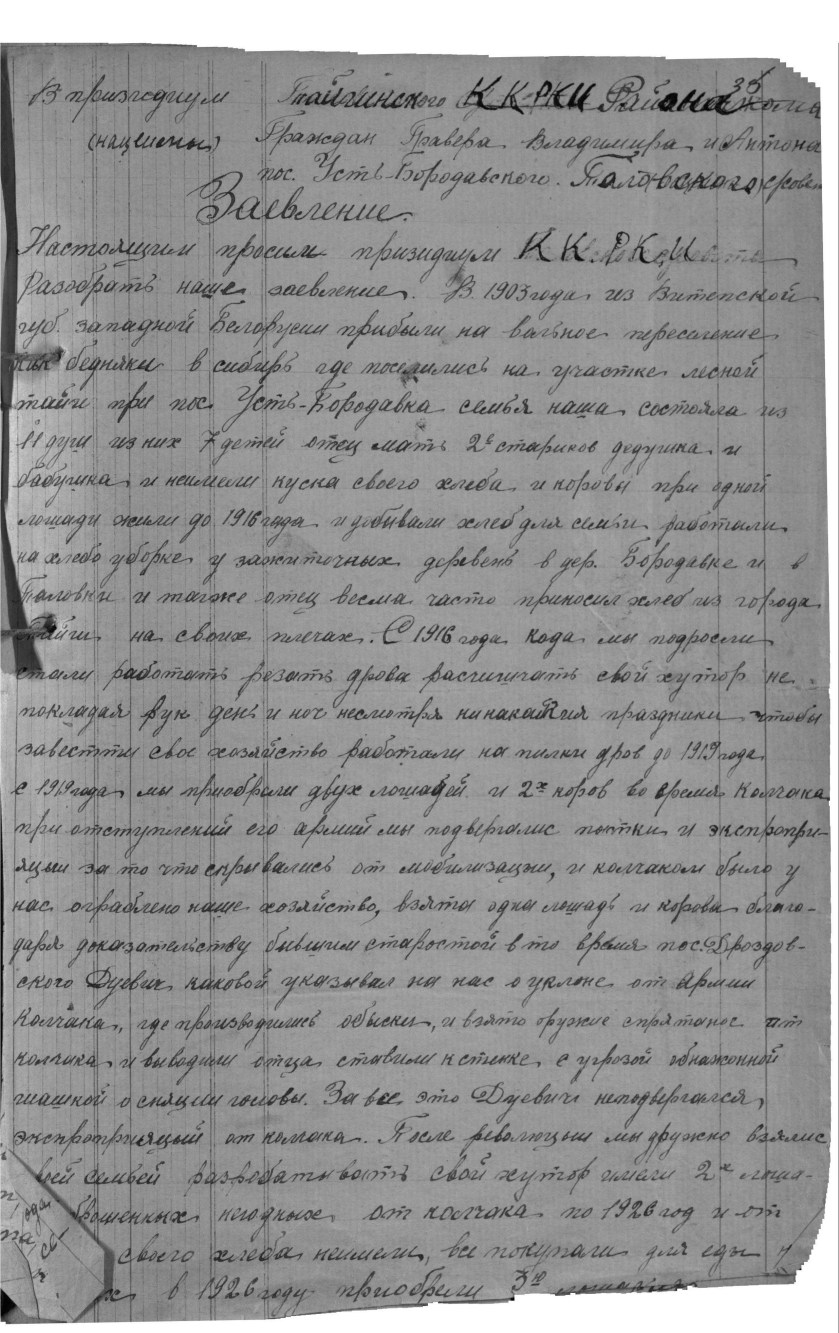 35
В призедиум Тайгинского К К РКИ Района
(нацмены) Граждан Гравера Владимира и Антона
пос. Усть-Бородавского. Таловского
Заевление.
Настоящим просим призидиум К К. Р К И
Разобрать наше заевление. В 1903 года из Витепской
губ. западной Белорусии прибыли на вольное переселение
как бедняки в сибирь где поселились на участке лесной
тайги при пос Усть-Бородавка семья наша состояла из
11 душ из них 7 детей отец мать 2е стариков дедушка и
бабушка и неимели куска своего хлеба и коровы при одной
лошади жили до 1916 года и добывали хлеб для семьи работали
на хлебо уборке у зажиточных деревень в дер. Бородавке и в
Таловки и тагже отец весма часто приносил хлеб из города
Тайги на своих плечах. С 1916 года кода мы подросли
стали работать резать дрова расчищать свой хутор не
покладая рук день и ноч несмотря нинакакия праздники чтобы
завестти свое хозяйство работали на пилки дров до 1919 года
с 1919 года мы приобрели двух лошадей и 2х коров во время Колчака
при отступлений его армий мы подвергалис пытки и экспропри-
яцыи за то что скрывались от мобилизации, и колчаком было у
нас ограблено наше хозяйство, взята одна лошадь и корова благо-
даря доказательству бывшим старостой в то время пос. Дроздов-
ского Дуевич каковой указывал на нас о уклоне от Армии
Колчака, где производились обыски, и взято оружие спрятаное от
колчака и выводили отца ставили к стенке с угрозой обнажонной
шашкой о снящии головы. За все это Дуевич неподвергался
экспроприяцый от колчака. После революцыи мы дружно взялис
всей семьей разробатывать свой хутор имели 2х лоша-
брошенных негодных от колчака по 1926 год и от
своего хлеба неимели, все покупали для еды
в 1926 году приобрели 3ю